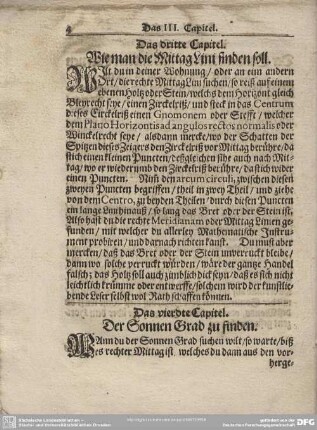 Das III. Capitel.
Das dritte Capitel.
Wie man die Mittag Lini finden soll.
WIlt du in deiner Wohnung / oder an einn andern
Ort / die rechte Mittag Lini suchen / so reiß auff einem
ebenen Holtz oder Stein / welchs dem Horizont gleich
Bleyrecht seye / einen Zirckelriß / und steck in das Centrum
dieses Circkelriß einen Gnomonem oder Steffe / welcher
dem Plano Horizontis ad angulos rectos normalis oder
Winckelrecht seye / alsdann mercke / wo der Schatten der
Spitzen dieses Zeigers den Zirckelriß vor Mittag berühre / da
stich einen kleinen Puncten / deßgleichen sihe auch nach Mit-
tag / wo er wiederumb den Zirckelriß berühre / da stich wider
einen Puncten. Miß den arcum circuli, zwischen diesen
zweyen Puncten begriffen / theil in zwey Theil / und ziehe
von dem Centro, zu beyden Theilen / durch diesen Puncten
ein lange Linyhinauß / so lang das Bret oder der Stein ist,
Also hast du die rechte Meridianam oder Mittag Linien ge-
funden / mit welcher du allerley Mathematische Instru-
ment probiren / und darnach richten kanst. Du must aber
mercken / daß das Bret oder der Stein unverruckt bleibe /
dann wo solche verruckt würden / wäre der gantze Handel
falsch; das Holtz soll auch zimblich dick seyn / daß es sich nicht
leichtlich krümme oder entwerffe / solchem wird der kunstlie-
bende Leser selbst wol Rath schaffen können.
Das vierdte Capitel.
Der Sonnen Grad zu finden.
WAnn du der Sonnen Grad suchen wilt / so warte / biß
es rechter Mittag ist, welches du dann aus den vor-
herge-